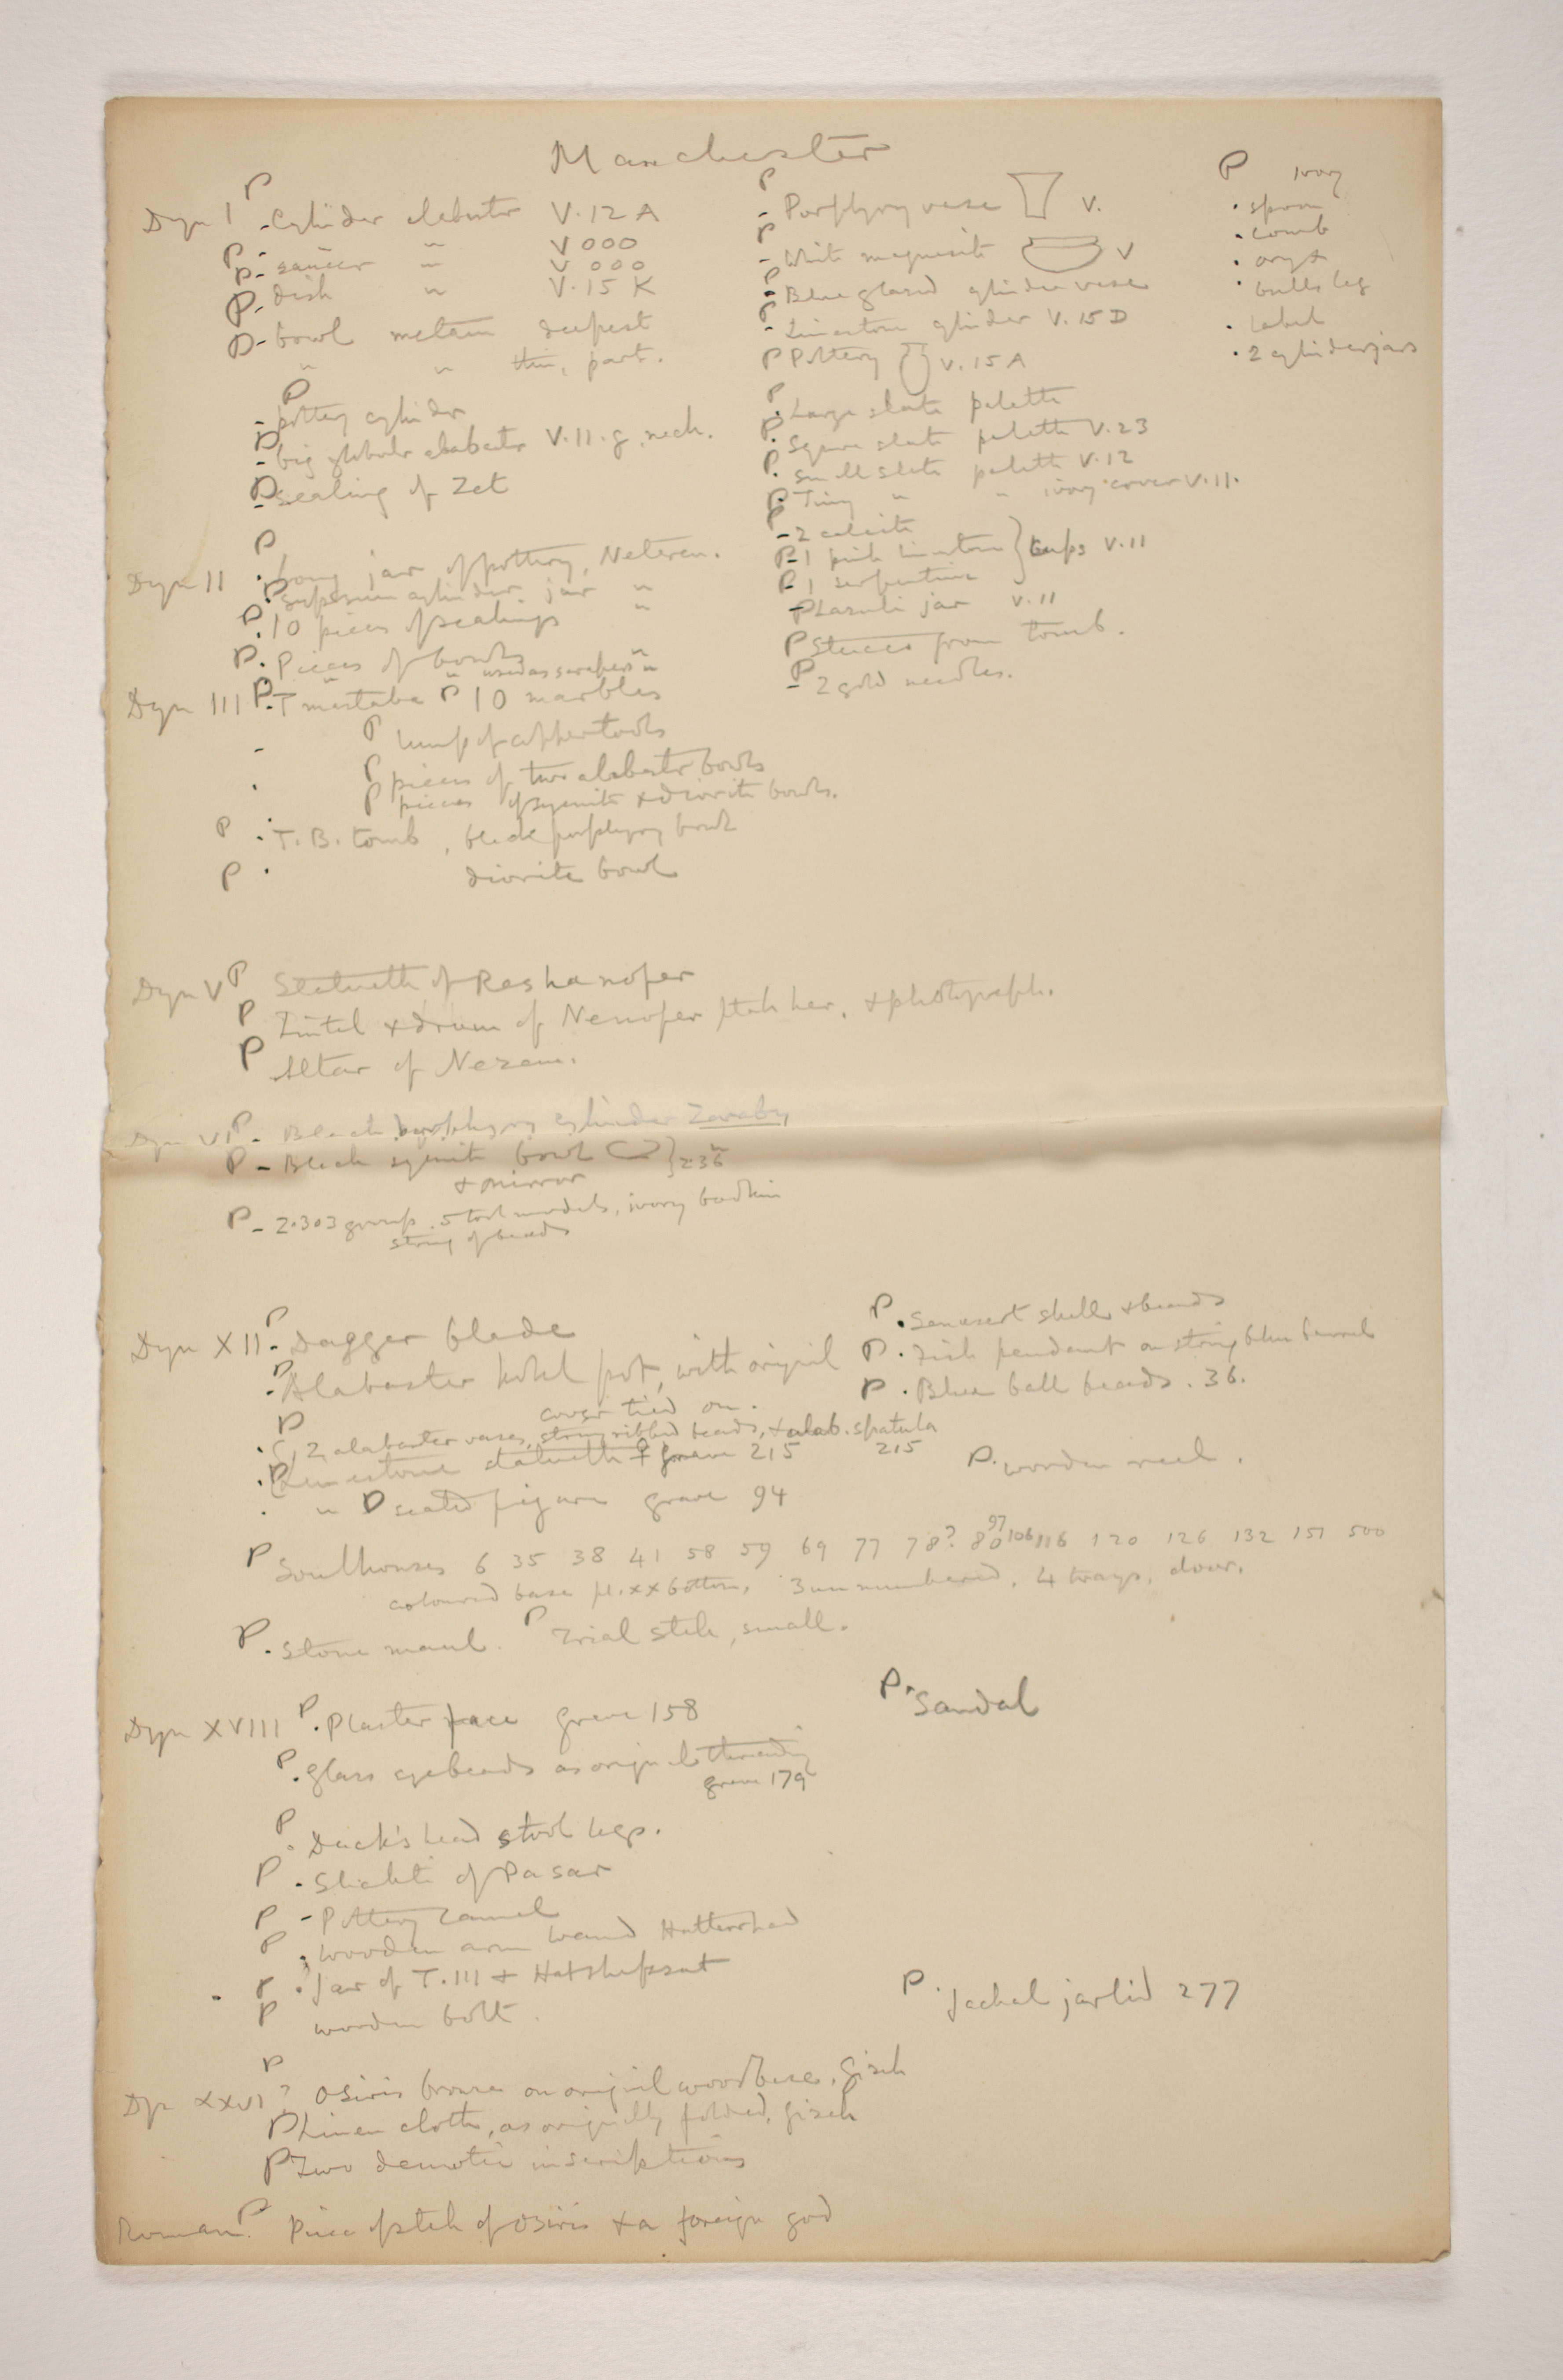 Manchester
Dyn I P - Cylinder alabaster V.12 A
P - saucer " V 000
P - " V 000
P - dish " V.15 K
P - bowl metam deepest
" " thin, part.
P - pottery cylinder
P - big globular alabaster V.11.g, neck.
P - sealing of Zet
P - Porphyry vase V.
P - White magnesite V
P - Blue glazed cylinder vase
P - Limestone cylinder V.15 D
P Pottery V.15 A
P . Large slate palette
P . Square slate palette V.23
P . small slate palette V.12
P . Tiny " " ivory cover V.11.
P - 2 calcite
P - 1 pink limestone } cups V.11
P - 1 serpentine
P - Lazuli jar V.11
P Stucco from tomb.
P - 2 gold needles.
P ivory
. spoon
. comb
. oryx
. bulls leg
. label
. 2 cylinder jars
Dyn II P . Long jar of pottery, Neteren.
P . cylinder jar "
P . 10 pieces of sealings "
P . Pieces of bowls "
" " used as scrapers "
Dyn III P . T mastaba P 10 marbles
- P lump of copper tools
. P pieces of two alabaster bowls
. P pieces of syenite & diorite bowls.
P . T.B. tomb, black porphyry bowl
P . diorite bowl
Dyn V P Statuette of Reshanofer
P Lintel & drum of Nenofer ptah her, & photograph.
P Altar of Nezem.
Dyn VI P - Black porphyry cylinder Zaraby
P - Black syenite bowl } 236
& mirror
P - 2.303 group. 5 tool models, ivory bodkin
string of beads
Dyn XII P - Dagger blade
P . Alabaster kohl pot, with original
cover tied on.
P . 2 alabaster vases, string ribbed beads, & alab. spatula
215
P . Limestone statuette ♀ grave 215
. " P seated figure grave 94
P . Senusert shell & beads
P . fish pendant on string blue barrel
P . Blue ball beads. 36.
P . wooden reel.
P Soulhouses 6 35 38 41 58 59 69 77 78? 80 97 106 116 120 126 132 151 500
coloured base pl. xx bottom, 3 unnumbered, 4 trays, door.
P . Stone maul. P Trial stele, small.
Dyn XVIII P . Plaster face grave 158
P . Sandal
P . Glass eyebeads as original threading
grave 179
P . Duck's head stool legs.
P . Shabti of Pasar
P - Pottery camel
P . wooden arm wand Hatterhed
. P . Jar of T.III & Hatshepsut
P wooden bolt.
P . Jackal jar lid 277
Dyn XXVI? P Osiris bronze on original wood base, Gizeh
P Linen cloth, as originally folded, Gizeh
P Two demotic inscriptions
Roman P . Piece of stele of Osiris & a foreign god